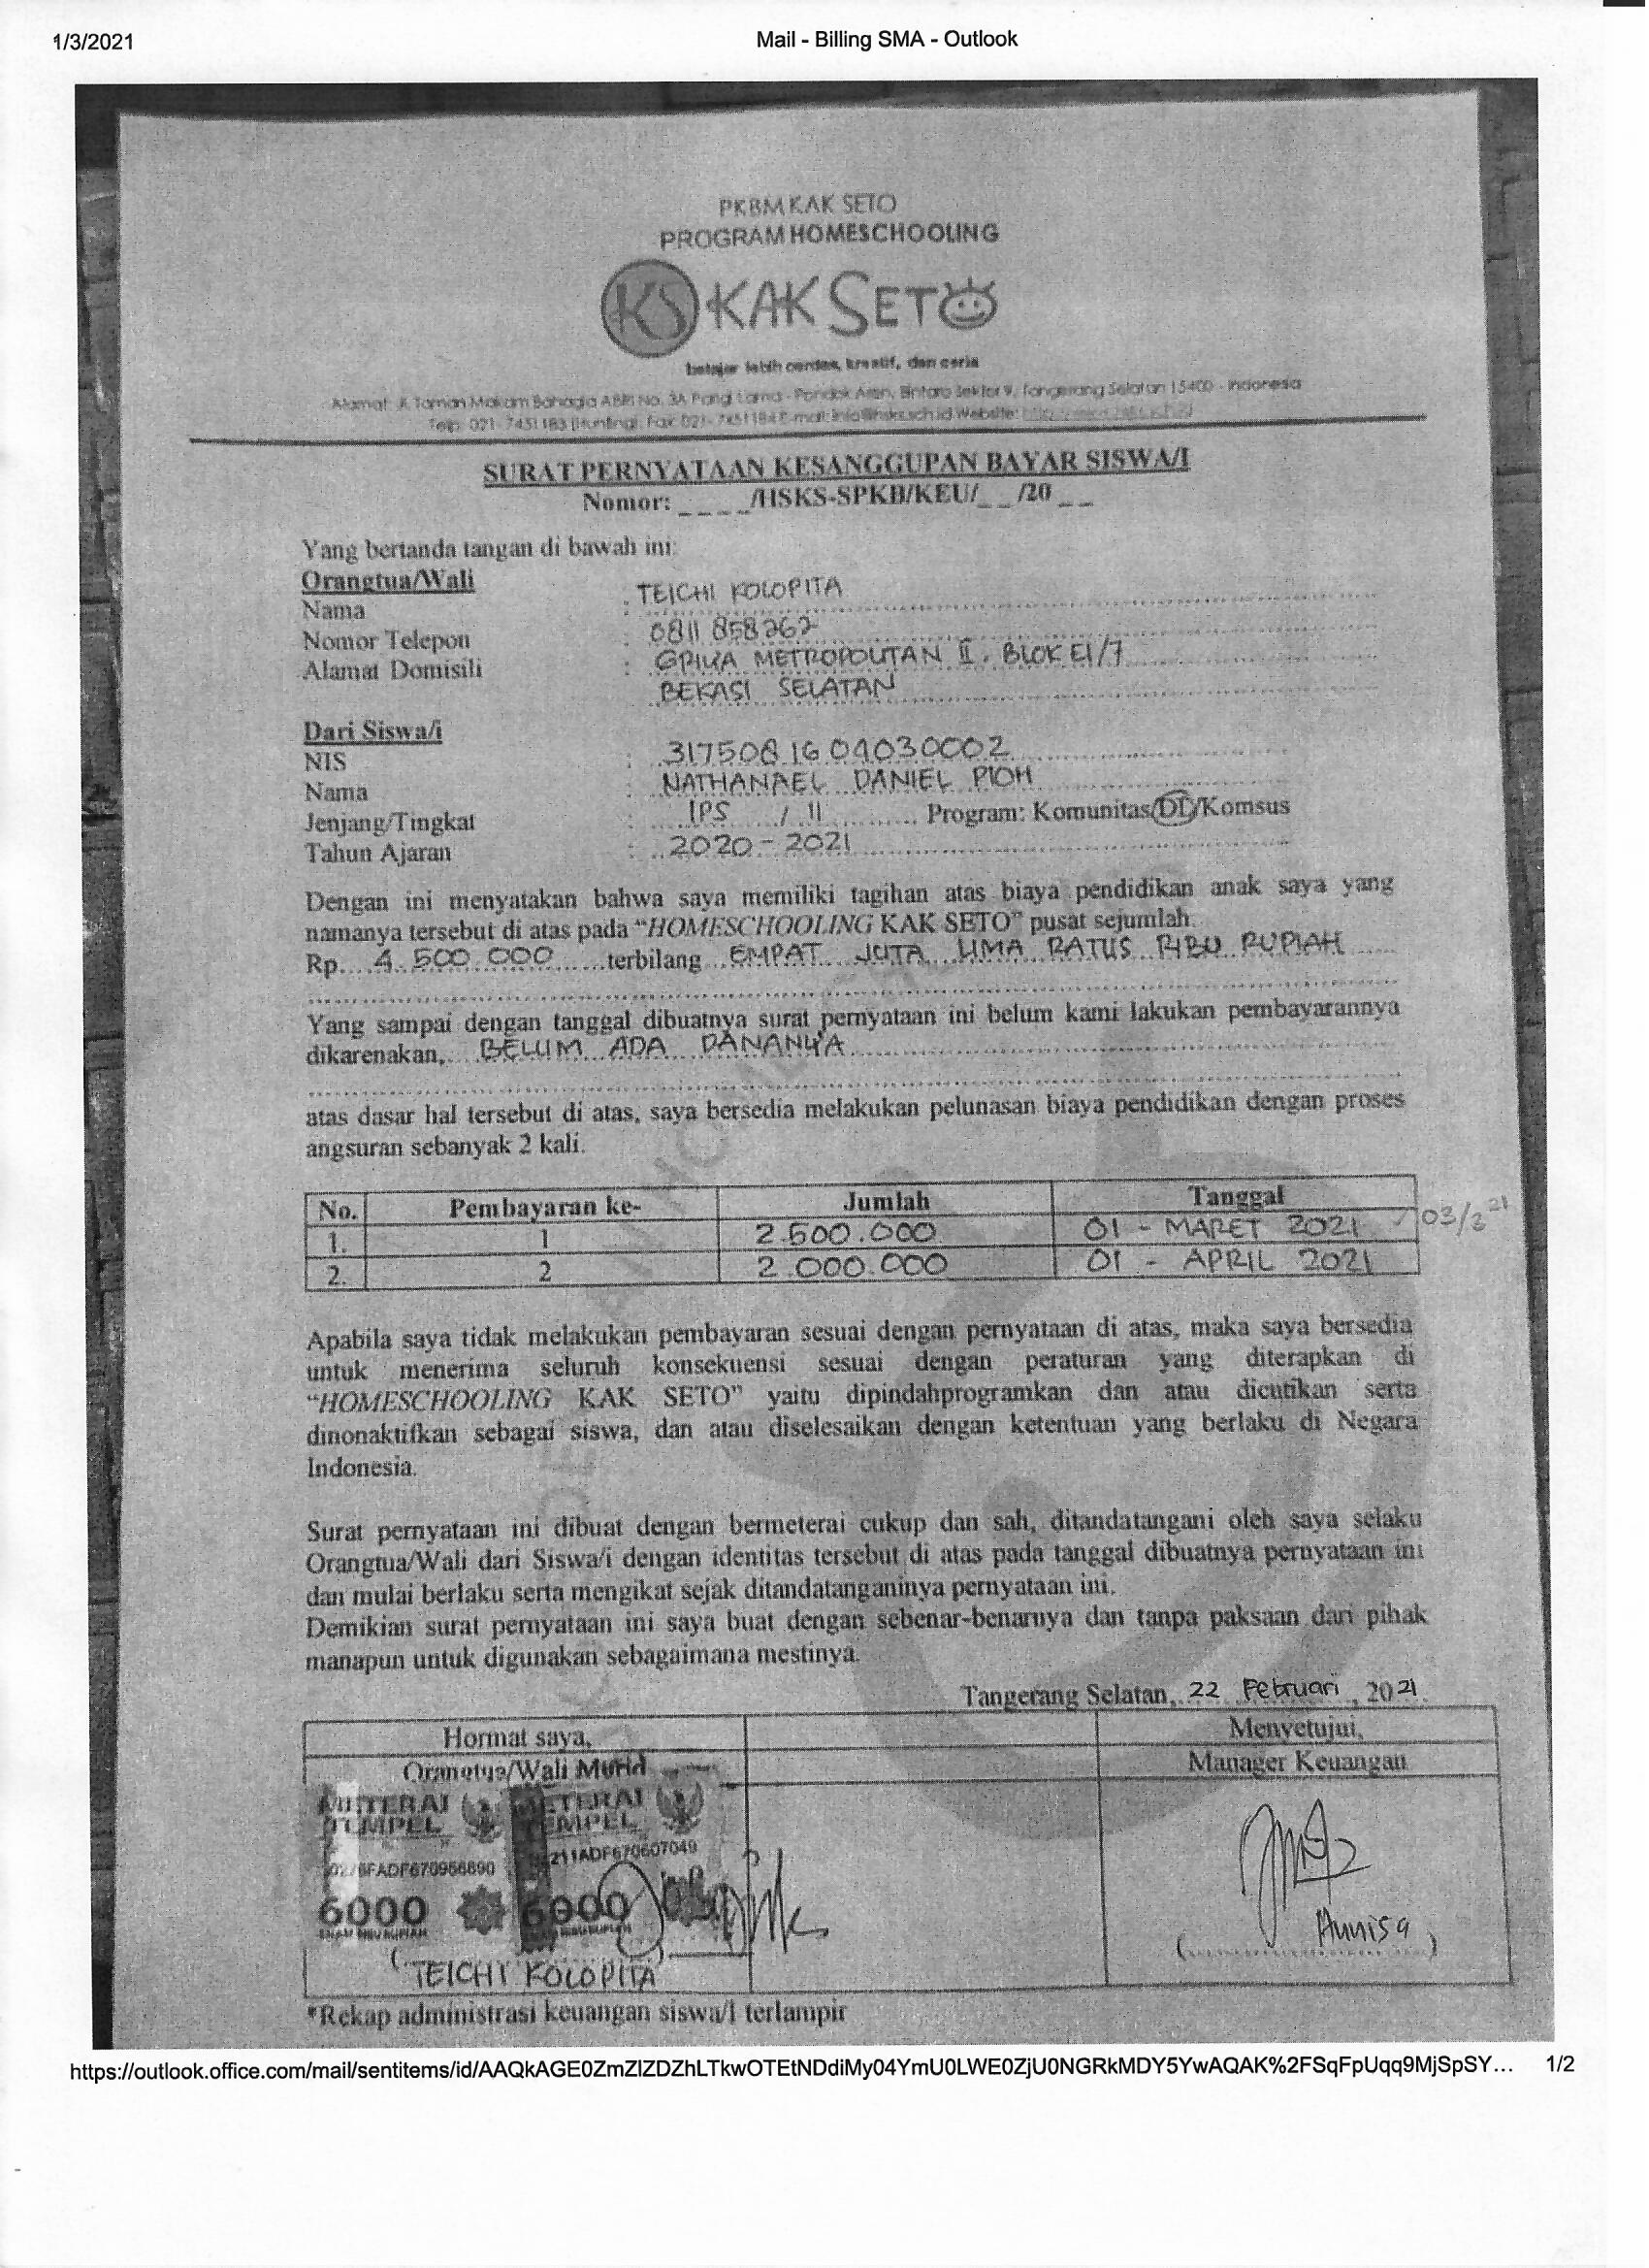 1/3/2021 Mail - Billing SMA - Outlook
PKBM KAK SETO
PROGRAM HOMESCHOOLING
KS KAK SETO
belajar lebih cerdas, kreatif, dan ceria
Alamat: Jl. Taman Makam Bahagia ABRI No. 3A Parigi Lama - Pondok Aren, Bintaro Sektor 9, Tangerang Selatan 15400 - Indonesia
Telp: 021- 7451183 (Hunting), Fax: 021- 7451184 E-mail: info@hsks.sch.id Website:
SURAT PERNYATAAN KESANGGUPAN BAYAR SISWA/I
Nomor: _ _ _ _/HSKS-SPKB/KEU/_ _/20_ _
Yang bertanda tangan di bawah ini:
Orangtua/Wali
Nama : TEICHI KOLOPITA
Nomor Telepon : 0811 858262
Alamat Domisili : GRIYA METROPOLITAN II. BLOK E1/7
BEKASI SELATAN
Dari Siswa/i
NIS : 3175081604030002
Nama : NATHANAEL DANIEL PIOH
Jenjang/Tingkat : IPS / 11 Program: Komunitas/DL/Komsus
Tahun Ajaran : 2020 - 2021
Dengan ini menyatakan bahwa saya memiliki tagihan atas biaya pendidikan anak saya yang
namanya tersebut di atas pada “HOMESCHOOLING KAK SETO” pusat sejumlah.
Rp. 4.500.000 terbilang EMPAT JUTA LIMA RATUS RIBU RUPIAH
Yang sampai dengan tanggal dibuatnya surat pernyataan ini belum kami lakukan pembayarannya
dikarenakan, BELUM ADA DANANYA
atas dasar hal tersebut di atas, saya bersedia melakukan pelunasan biaya pendidikan dengan proses
angsuran sebanyak 2 kali.
No. Pembayaran ke- Jumlah Tanggal
1. 1 2.500.000 01 - MARET 2021 03/3 21
2. 2 2.000.000 01 - APRIL 2021
Apabila saya tidak melakukan pembayaran sesuai dengan pernyataan di atas, maka saya bersedia
untuk menerima seluruh konsekuensi sesuai dengan peraturan yang diterapkan di
“HOMESCHOOLING KAK SETO” yaitu dipindahprogramkan dan atau dicutikan serta
dinonaktifkan sebagai siswa, dan atau diselesaikan dengan ketentuan yang berlaku di Negara
Indonesia.
Surat pernyataan ini dibuat dengan bermeterai cukup dan sah, ditandatangani oleh saya selaku
Orangtua/Wali dari Siswa/i dengan identitas tersebut di atas pada tanggal dibuatnya pernyataan ini
dan mulai berlaku serta mengikat sejak ditandatanganinya pernyataan ini.
Demikian surat pernyataan ini saya buat dengan sebenar-benarnya dan tanpa paksaan dari pihak
manapun untuk digunakan sebagaimana mestinya.
Tangerang Selatan, 22 Februari, 2021
Hormat saya, Menyetujui,
Orangtua/Wali Murid Manager Keuangan
METERAI METERAI
TEMPEL TEMPEL
FADF670966890 211ADF670607049
6000 6000
ENAM RIBU RUPIAH
Annisa
(TEICHI KOLOPITA)
*Rekap administrasi keuangan siswa/I terlampir
https://outlook.office.com/mail/sentitems/id/AAQkAGE0ZmZlZDZhLTkwOTEtNDdiMy04YmU0LWE0ZjU0NGRkMDY5YwAQAK%2FSqFpUqq9MjSpSY... 1/2